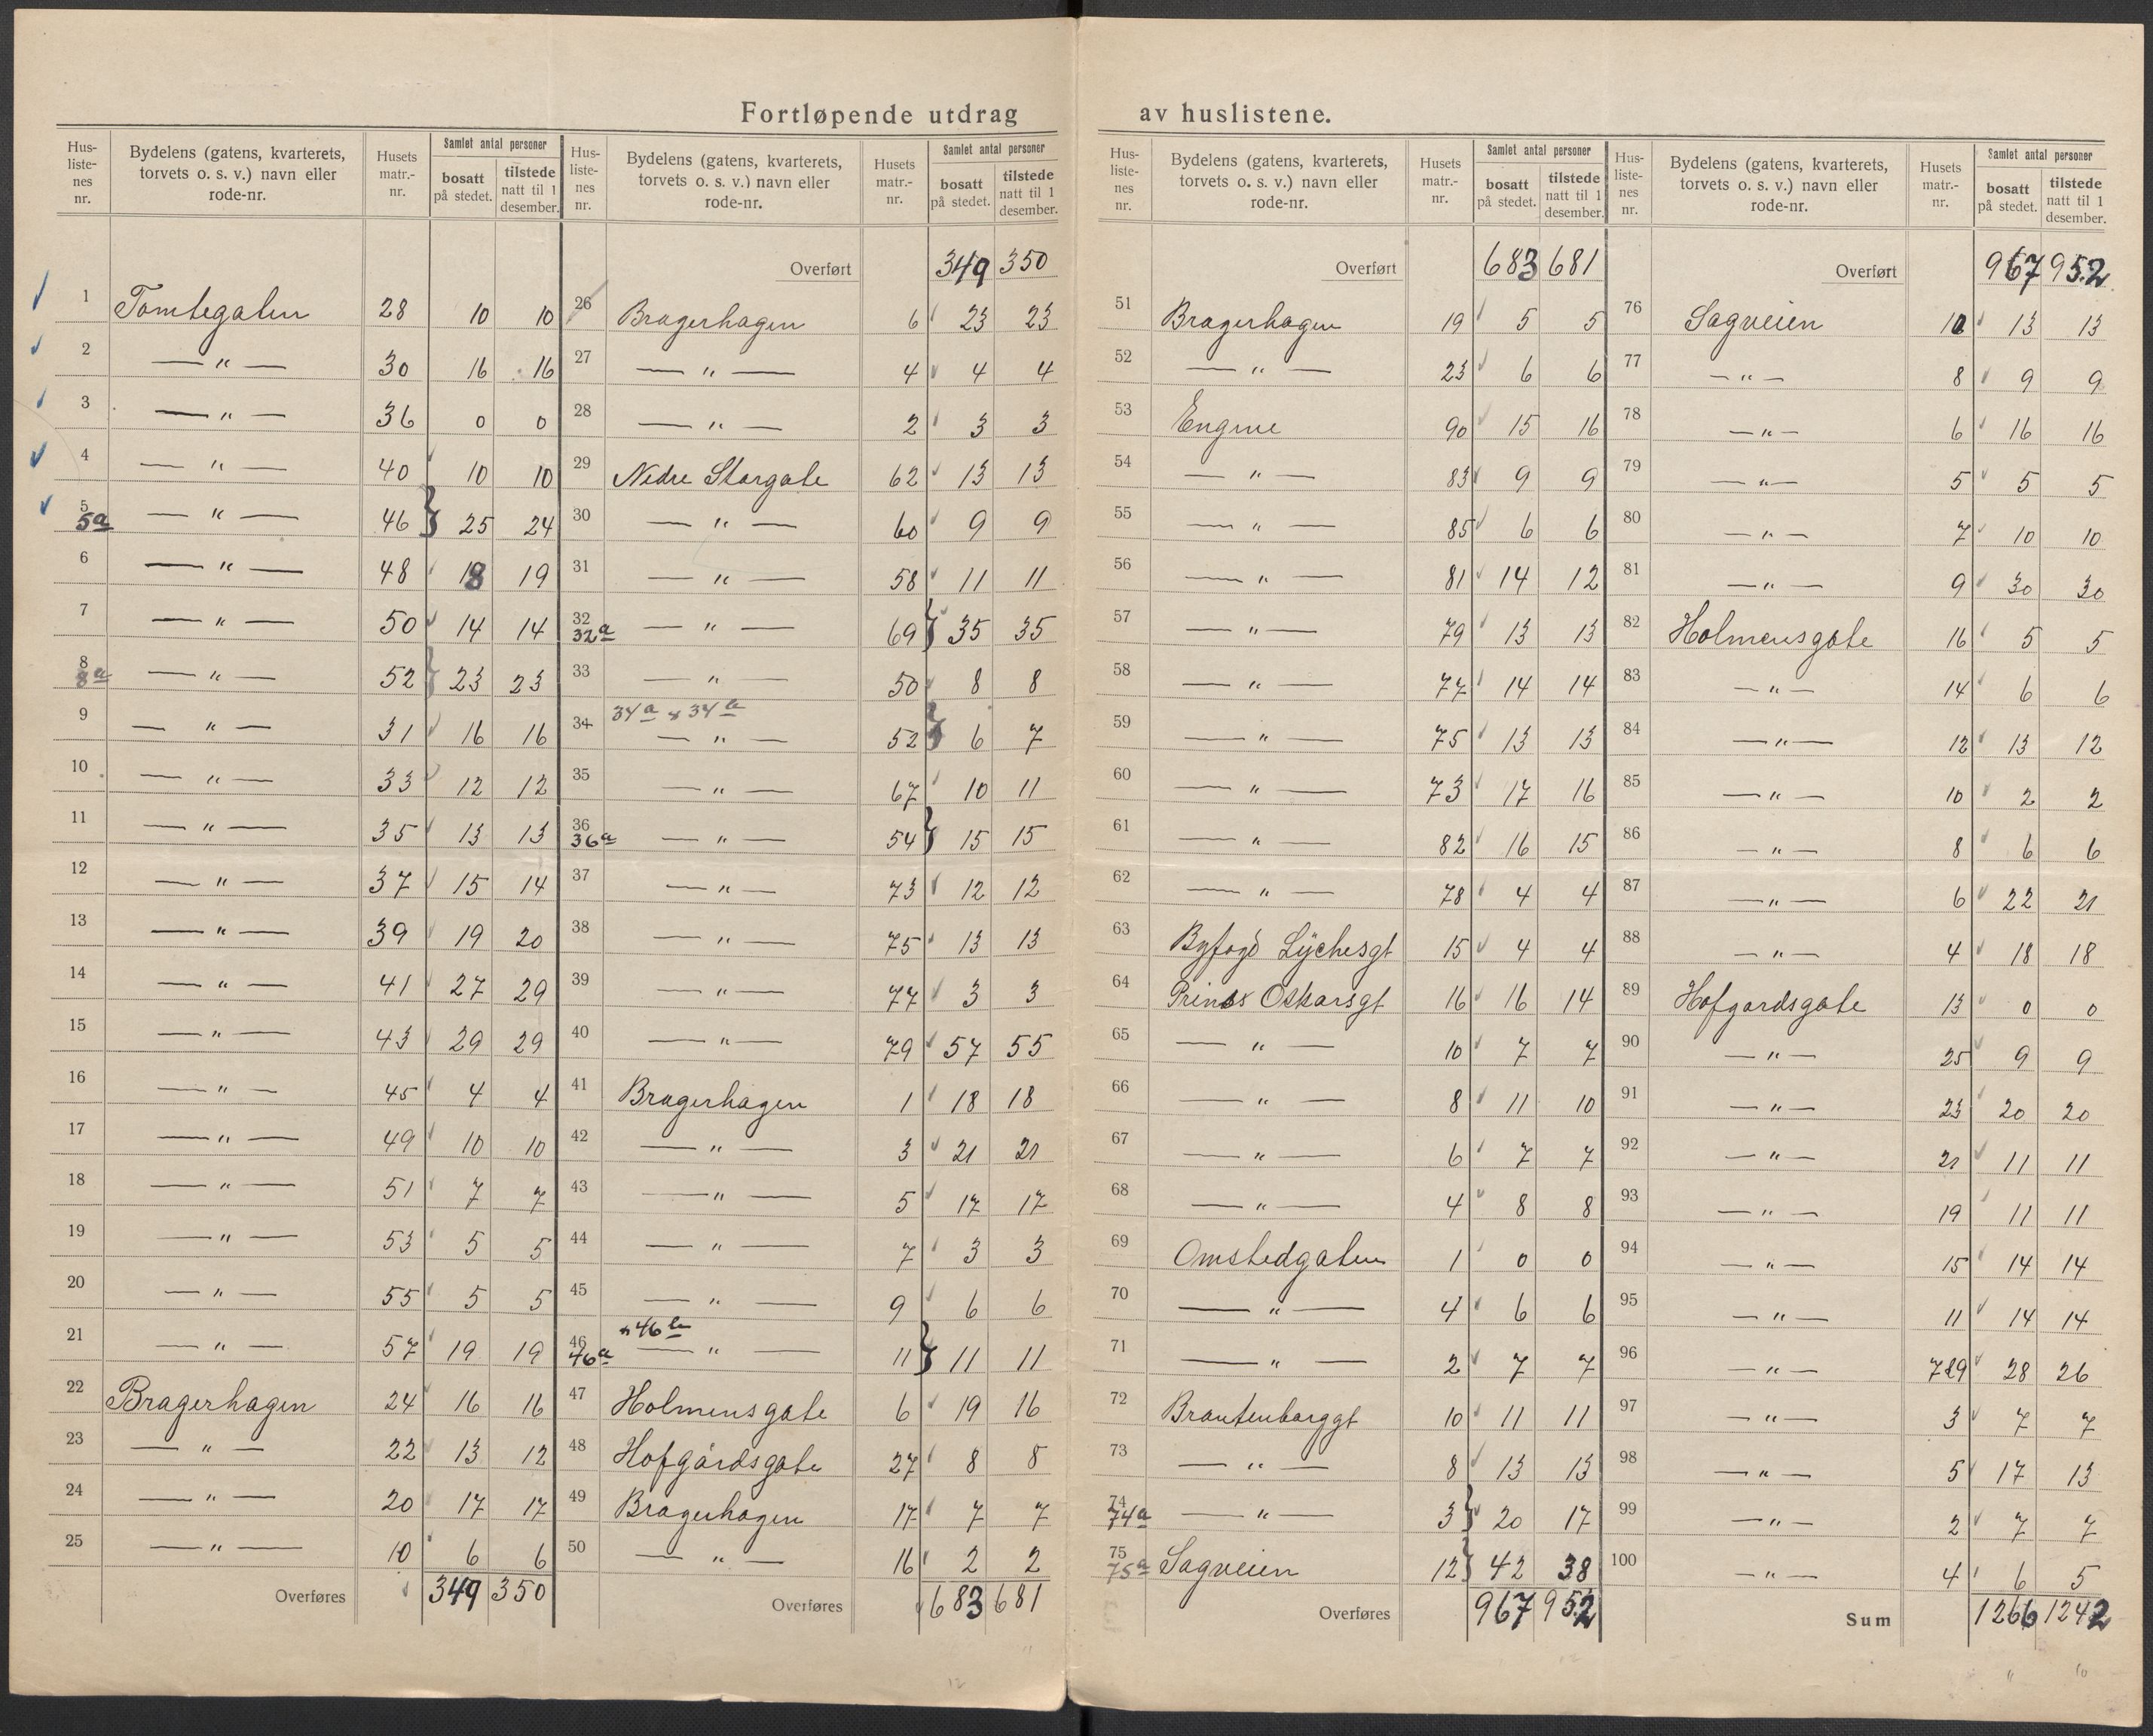 Fortløpende utdrag av huslistene.
Hus-liste-nes nr. | Bydelens (gatens, kvarterets, torvets o. s. v.) navn eller rode-nr. | Husets matr.-nr. | Samlet antal personer | bosatt på stedet. | tilstede natt til 1 desember.
1 Tomtegaten 28 10 10
2 — " — 30 16 16
3 — " — 36 0 0
4 — " — 40 10 10
5 5a — " — 46 } 25 24
6 — " — 48 18 19
7 — " — 50 14 14
8 8a — " — 52 } 23 23
9 — " — 31 16 16
10 — " — 33 12 12
11 — " — 35 13 13
12 — " — 37 15 14
13 — " — 39 19 20
14 — " — 41 27 29
15 — " — 43 29 29
16 — " — 45 4 4
17 — " — 49 10 10
18 — " — 51 7 7
19 — " — 53 5 5
20 — " — 55 5 5
21 — " — 57 19 19
22 Bragerhagen 24 16 16
23 — " — 22 13 12
24 — " — 20 17 17
25 — " — 10 6 6
Overføres 349 350
Hus-liste-nes nr. | Bydelens (gatens, kvarterets, torvets o. s. v.) navn eller rode-nr. | Husets matr.-nr. | Samlet antal personer | bosatt på stedet. | tilstede natt til 1 desember.
Overført 349 350
26 Bragerhagen 6 23 23
27 — " — 4 4 4
28 — " — 2 3 3
29 Nedre Storgate 62 13 13
30 — " — 60 9 9
31 — " — 58 11 11
32 32a — " — 69 } 35 35
33 — " — 50 8 8
34 34a & 34a — " — 52 } 6 7
35 — " — 67 10 11
36 36a — " — 54 } 15 15
37 — " — 73 12 12
38 — " — 75 13 13
39 — " — 77 3 3
40 — " — 79 57 55
41 Bragerhagen 1 18 18
42 — " — 3 21 21
43 — " — 5 17 17
44 — " — 7 3 3
45 — " — 9 6 6
46 46a & 46b — " — 11 } 11 11
47 Holmensgate 6 19 16
48 Hofgårdsgate 27 8 8
49 Bragerhagen 17 7 7
50 — " — 16 2 2
Overføres 683 681
Hus-liste-nes nr. | Bydelens (gatens, kvarterets, torvets o. s. v.) navn eller rode-nr. | Husets matr.-nr. | Samlet antal personer | bosatt på stedet. | tilstede natt til 1 desember.
Overført 683 681
51 Bragerhagen 19 5 5
52 — " — 23 6 6
53 Engene 90 15 16
54 — " — 83 9 9
55 — " — 85 6 6
56 — " — 81 14 12
57 — " — 79 13 13
58 — " — 77 14 14
59 — " — 75 13 13
60 — " — 73 17 16
61 — " — 82 16 15
62 — " — 78 4 4
63 Byfogd Lychesgt 15 4 4
64 Prins Oskarsgt 16 16 14
65 — " — 10 7 7
66 — " — 8 11 10
67 — " — 6 7 7
68 — " — 4 8 8
69 Omstedgaten 1 0 0
70 — " — 4 6 6
71 — " — 2 7 7
72 Brantenborggt 10 11 11
73 — " — 8 13 13
74 74a — " — 3 } 20 17
75 75a Sagveien 12 } 42 38
Overføres 967 952
Hus-liste-nes nr. | Bydelens (gatens, kvarterets, torvets o. s. v.) navn eller rode-nr. | Husets matr.-nr. | Samlet antal personer | bosatt på stedet. | tilstede natt til 1 desember.
Overført 967 952
76 Sagveien 10 13 13
77 — " — 8 9 9
78 — " — 6 16 16
79 — " — 5 5 5
80 — " — 7 10 10
81 — " — 9 30 30
82 Holmensgate 16 5 5
83 — " — 14 6 6
84 — " — 12 13 12
85 — " — 10 2 2
86 — " — 8 6 6
87 — " — 6 22 21
88 — " — 4 18 18
89 Hofgardsgate 13 0 0
90 — " — 25 9 9
91 — " — 23 20 20
92 — " — 21 11 11
93 — " — 19 11 11
94 — " — 15 14 14
95 — " — 11 14 14
96 — " — 7&9 28 26
97 — " — 3 7 7
98 — " — 5 17 13
99 — " — 2 7 7
100 — " — 4 6 5
Sum 1266 1242